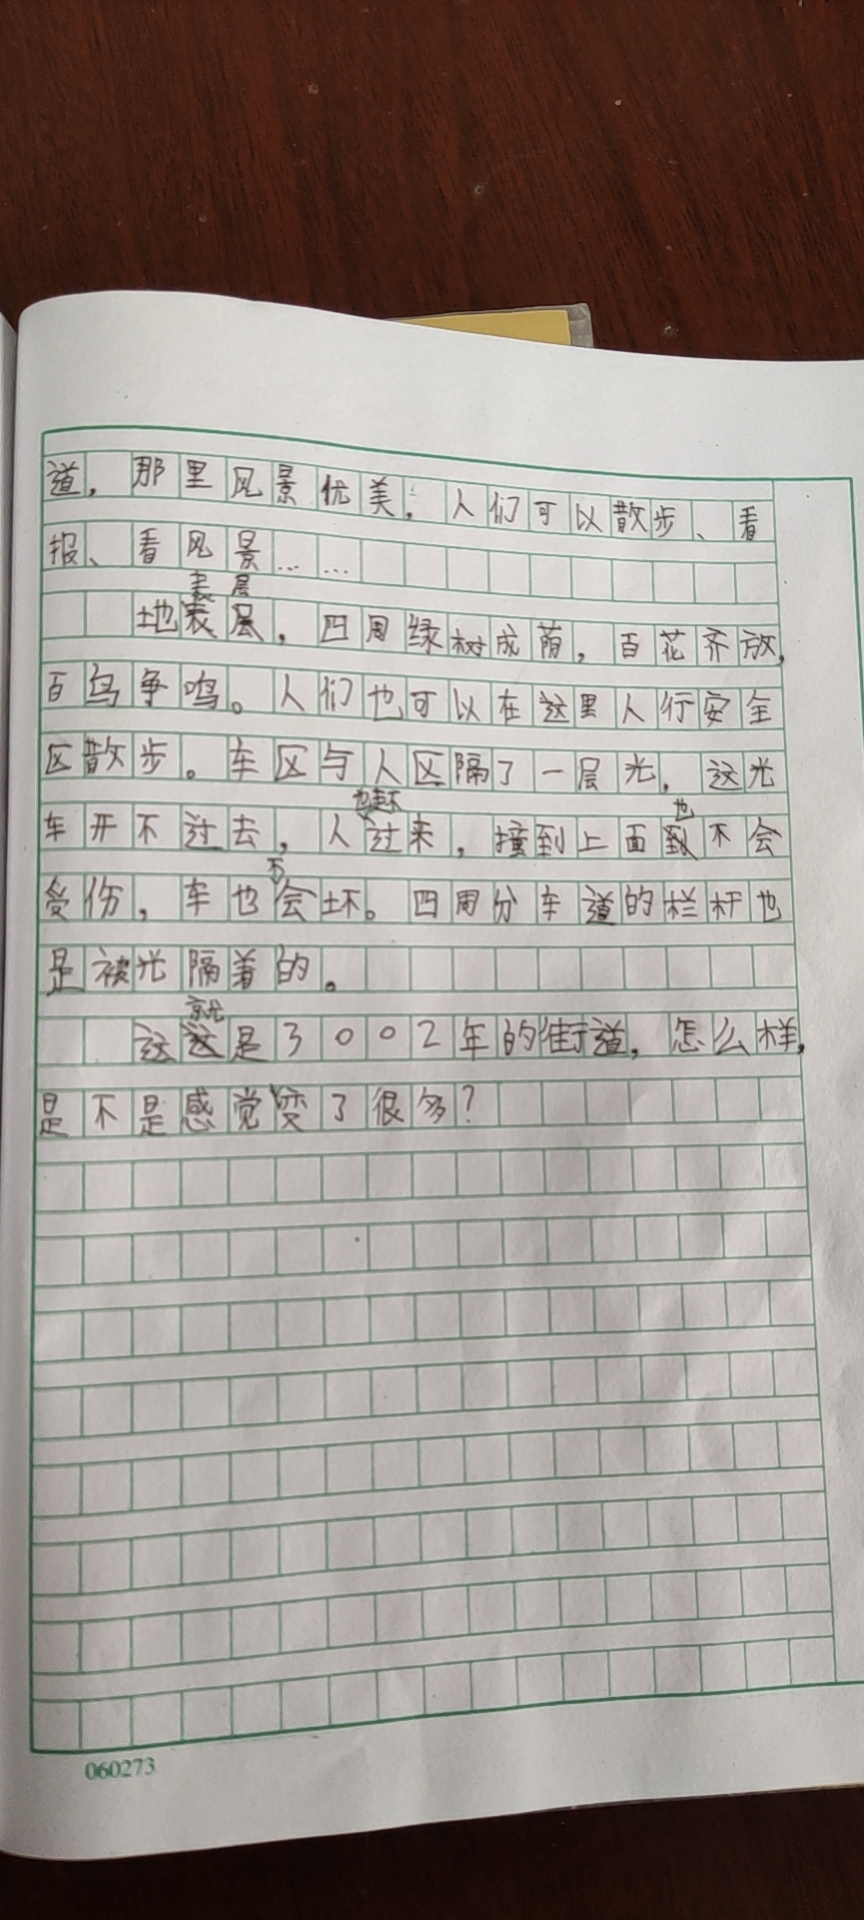 道，那里风景优美，人们可以散步、看
报、看风景……
表层
地表层，四周绿树成荫，百花齐放，
百鸟争鸣。人们也可以在这里人行安全
区散步。车区与人区隔了一层光，这光
也走不 也
车开不过去，人过来，撞到上面到不会
不
受伤，车也会坏。四周分车道的栏杆也
是被光隔着的。
就
这这是3002年的街道，怎么样，
是不是感觉变了很多？
060273